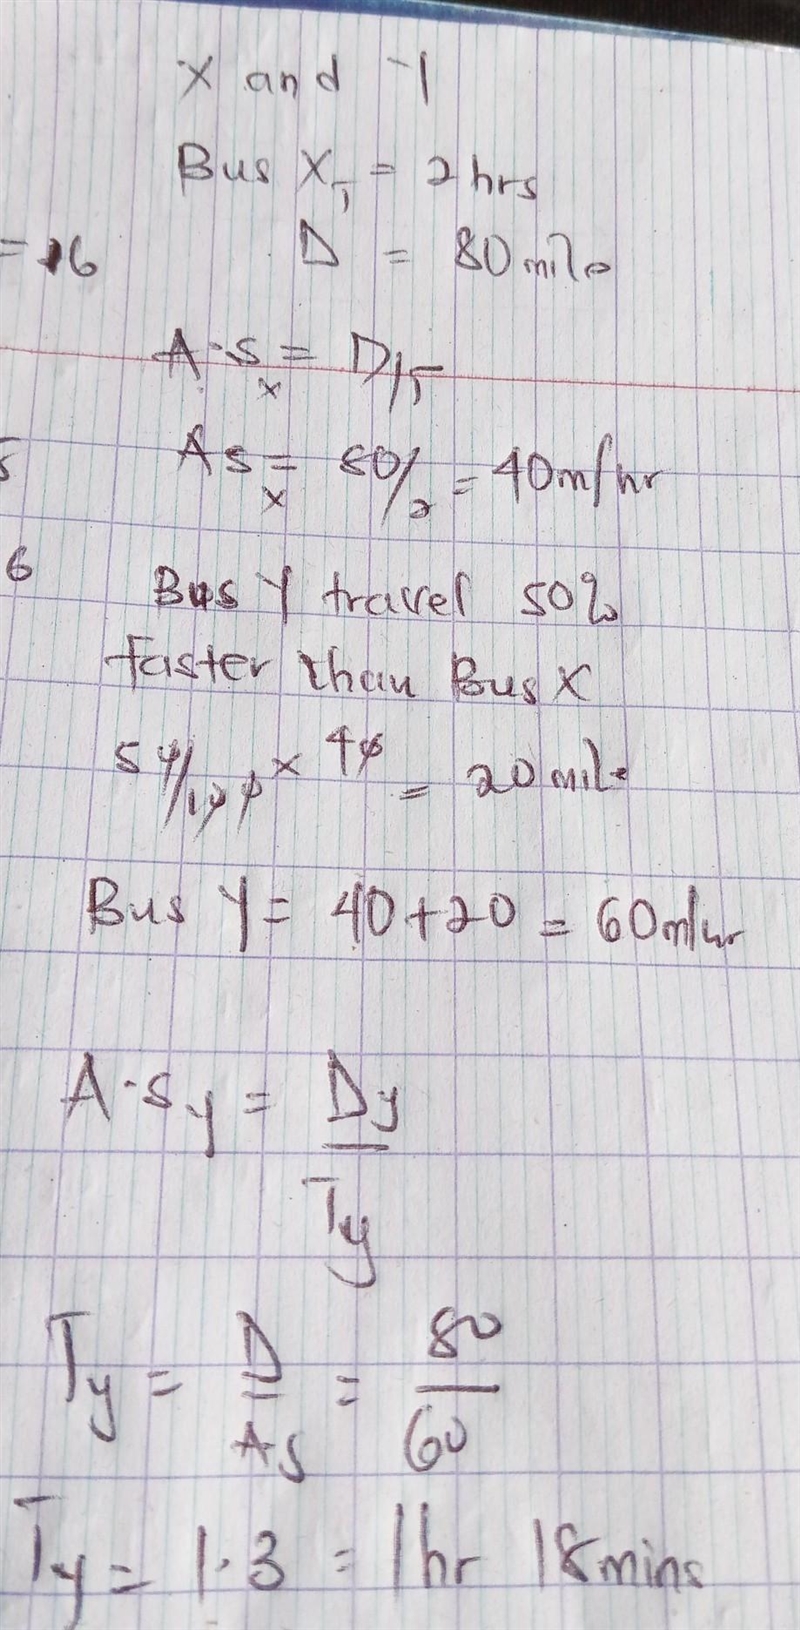 X and Y
Bus X_T = 2hrs
= 16
D = 80mile
A.S_x = D/T
5
AS_x = 80/2 = 40m/hr
6
Bus Y travel 50%
faster than Bus X
50/100 x 40 = 20mile
Bus Y = 40+20 = 60m/hr
A.S_y = D_y/T_y
T_y = D/AS = 80/60
T_y = 1.3 = 1hr 18mins